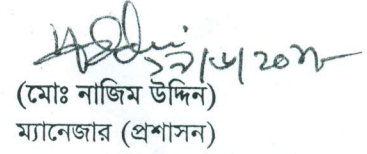 (মোঃ নাজিম উদ্দিন)
ম্যানেজার (প্রশাসন)